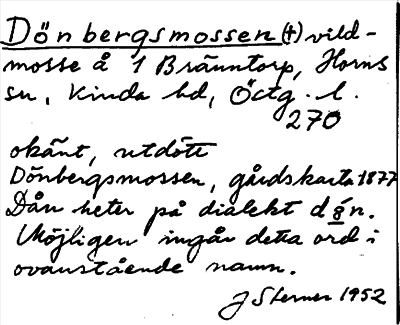 Dönbergsmossen (†) vild-
mosse å 1 Bränntorp, Horns
sn, Kinda hd, Öctg. l.
270
okänt, utdött
Dönbergsmossen, gårdskarta 1877
Dån heter på dialekt
Möjligen ingår detta ord i
ovanstående namn.
J Sterner 1952